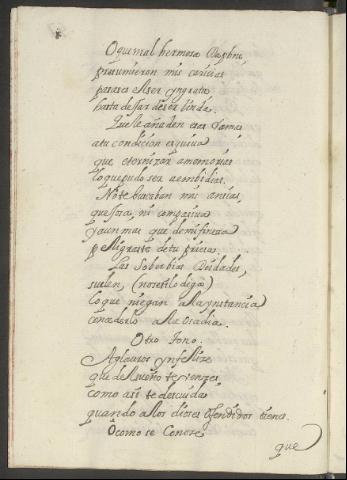 O que mal hermosa Daphne,
presumieron mis caricias
para ser yngrata
hasta dejar de ser linda.
Que le añaden esas ramas
a tu condicion esquiva
que eternizar a memorias
lo que pudo ser a embidias.
No te buscaban mis ansias,
que fiera, ni compasiva
y aun mas que de mi fineza
peligraste de tu prissa.
Las Soberbias Deidades,
suelen, (no se si lo diga)
lo que niegan a la ynstancia
concederlo a la osadia.
Otro Tono.
Aglauros ynfelize
que del sueño te venzes
como assi te descuidas
quando a los dioses ofendidos tienes.
O como se
que